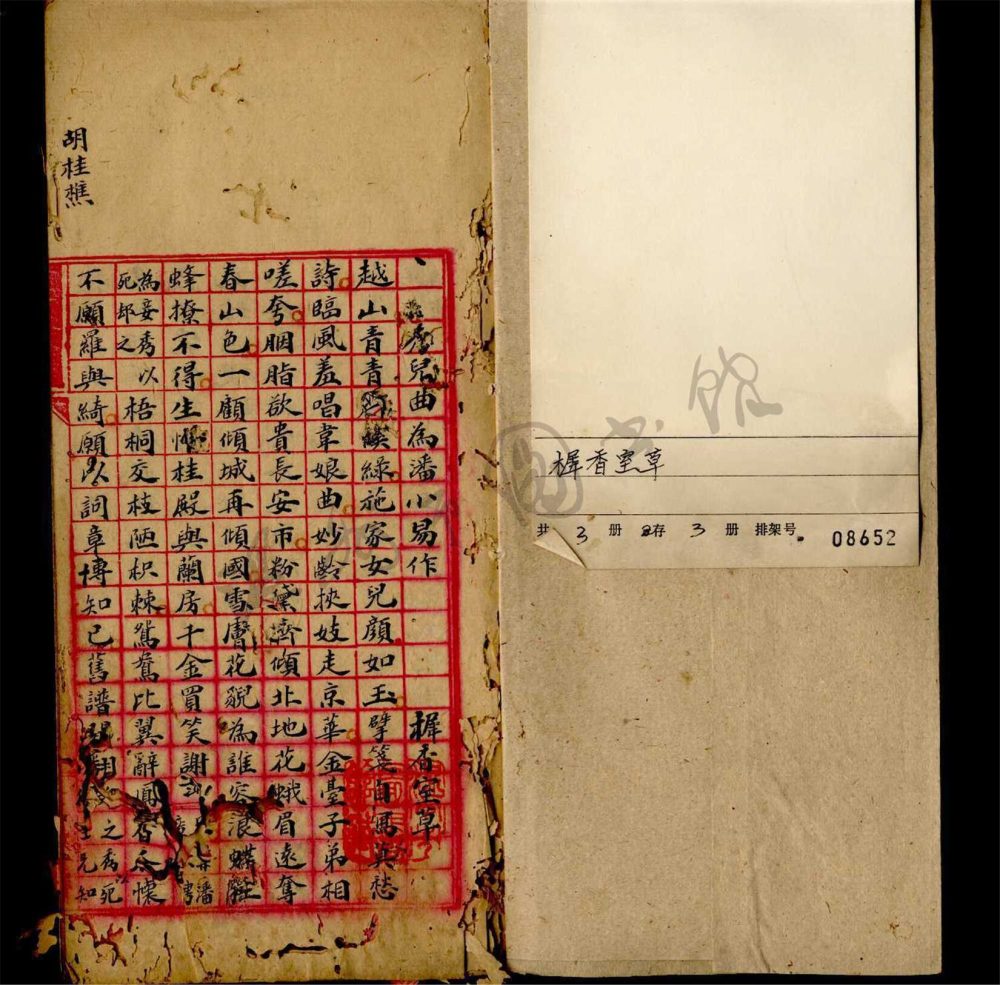 樨香室草
共 3 册 存 3 册 排架号 08652
秀兒曲 為潘小易作 樨香室草
越山青青 綠施家女兒顔如玉擘箋自寫莫愁
詩臨風羞唱韋娘曲妙齡挾妓走京華金臺子弟相
嗟夸胭脂欲貴長安市粉黛濟傾北地花蛾眉遠奪
春山色一顧傾城再傾國雪膚花貌為誰容浪蝶
蜂撩不得生憎桂殿與蘭房千金買笑謝 潘
為妾秀以死郤之 梧桐交枝陋枳棘鴛鴦比翼辭鳳 懷
不願羅與綺願以詞章博知已舊譜 翻 之為死 知
胡桂樵